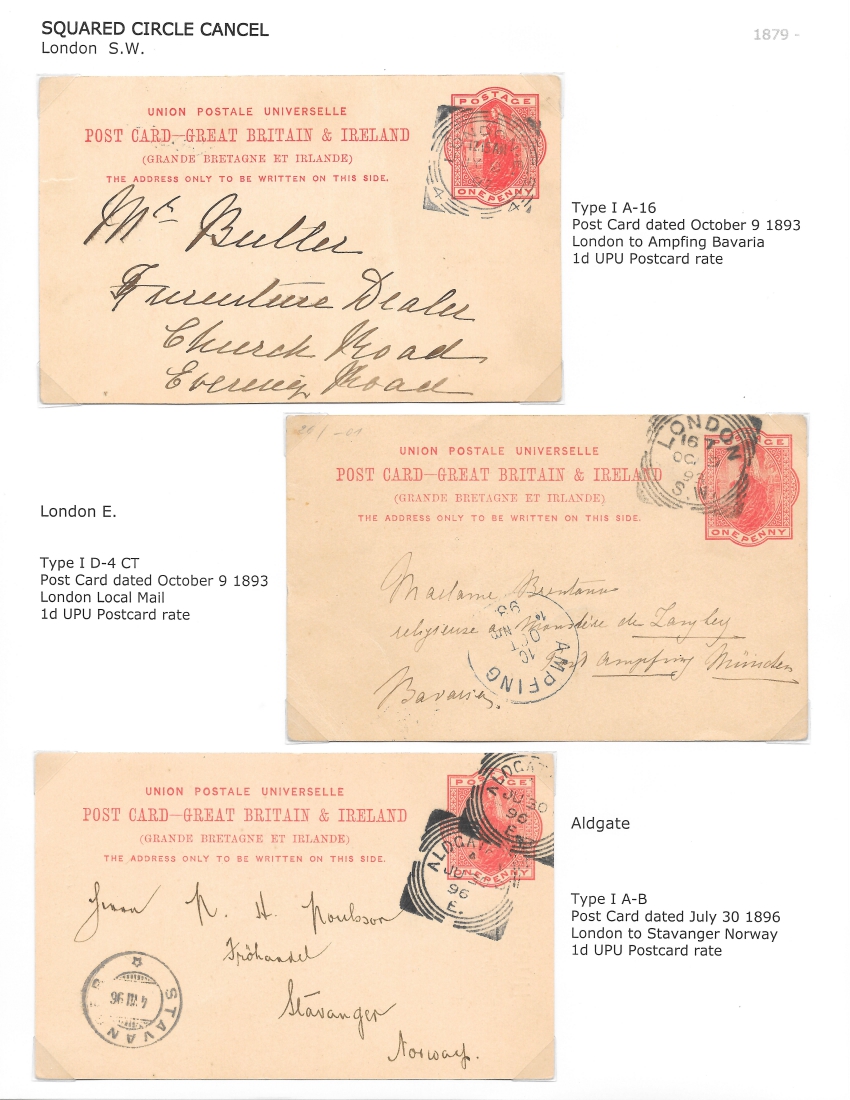 SQUARED CIRCLE CANCEL
London S.W.
1879 -
UNION POSTALE UNIVERSELLE
POST CARD—GREAT BRITAIN & IRELAND
(GRANDE BRETAGNE ET IRLANDE)
THE ADDRESS ONLY TO BE WRITTEN ON THIS SIDE.
POSTAGE
ONE PENNY
Mr Butler
Furenture Dealer
Church Road
Evering Road
Type I A-16
Post Card dated October 9 1893
London to Ampfing Bavaria
1d UPU Postcard rate
UNION POSTALE UNIVERSELLE
POST CARD—GREAT BRITAIN & IRELAND
(GRANDE BRETAGNE ET IRLANDE)
THE ADDRESS ONLY TO BE WRITTEN ON THIS SIDE.
LONDON
OC
S.W.
ONE PENNY
Madame Brentano
religieuse au Monastère de Zangberg
Post Ampfing München
Bavaria.
AMPFING
10
OCT
93
London E.
Type I D-4 CT
Post Card dated October 9 1893
London Local Mail
1d UPU Postcard rate
UNION POSTALE UNIVERSELLE
POST CARD—GREAT BRITAIN & IRELAND
(GRANDE BRETAGNE ET IRLANDE)
THE ADDRESS ONLY TO BE WRITTEN ON THIS SIDE.
POSTAGE
ONE PENNY
ALDGAT
JU 30
96
ALDGAT
JU
96
E.
Herrn
Fröhandel
Stavanger
Norway.
STAVAN
4 VIII 96
Aldgate
Type I A-B
Post Card dated July 30 1896
London to Stavanger Norway
1d UPU Postcard rate